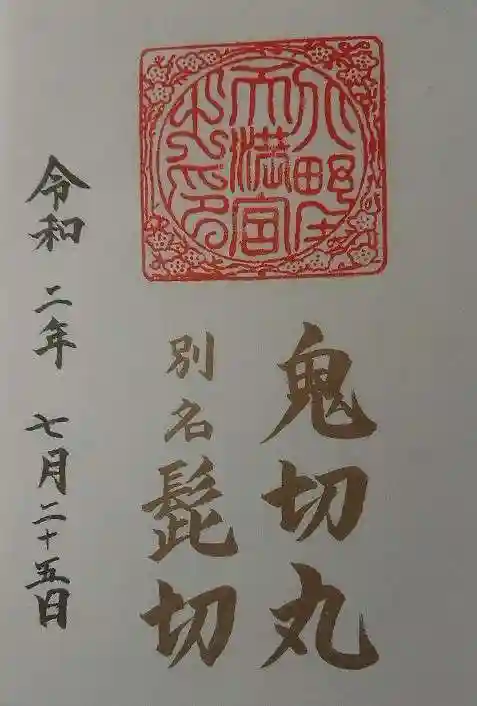 天満宮
鬼切丸
別名 髭切
令和 二年 七月二十五日